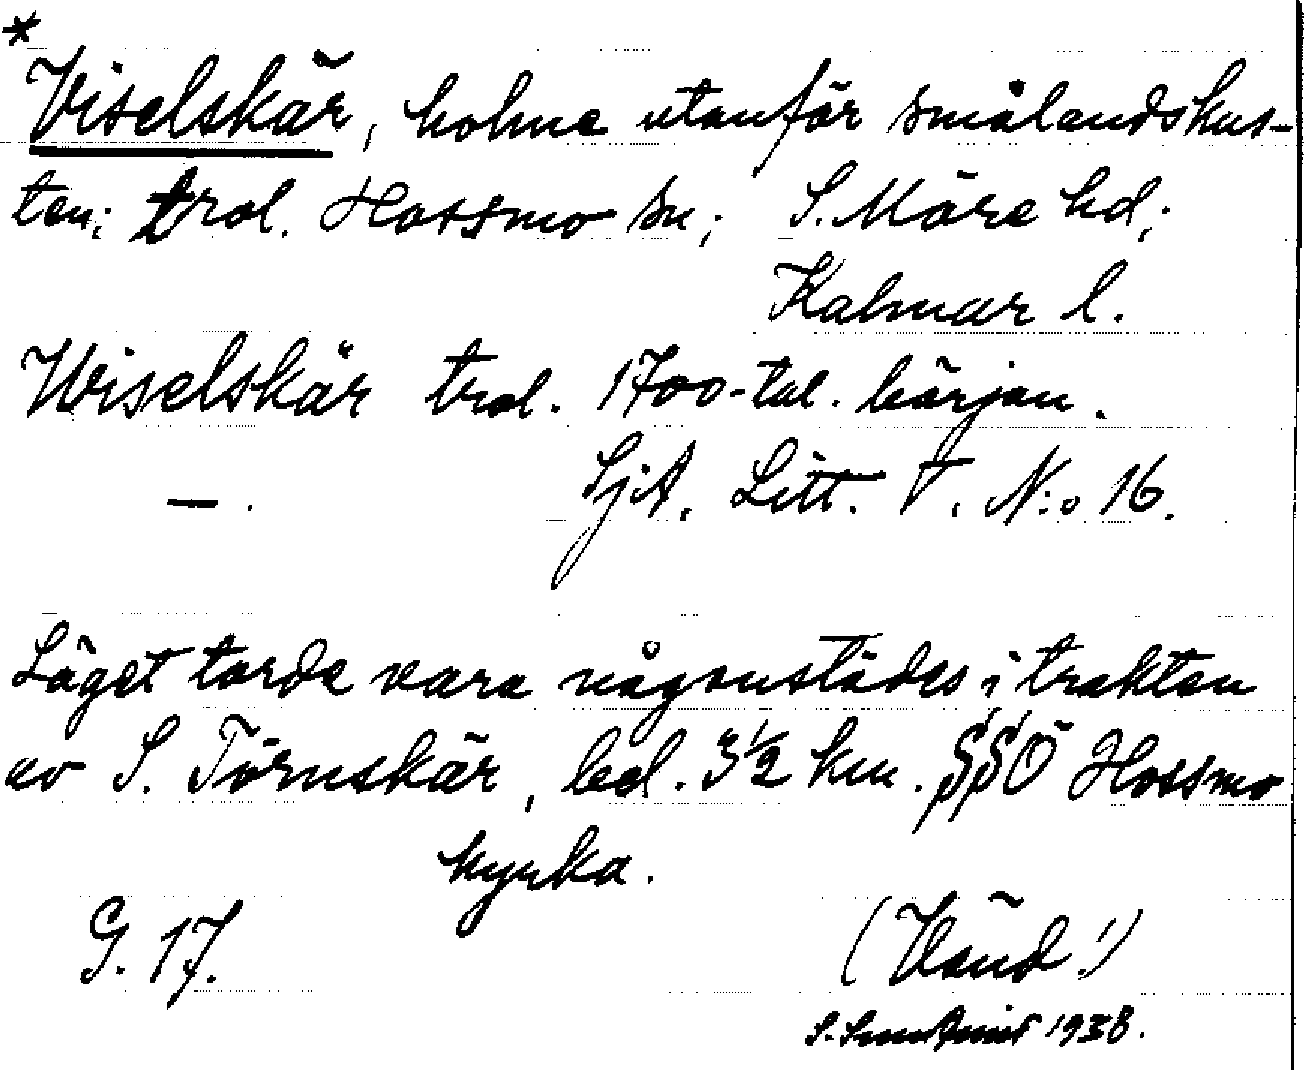 *
Viselskär, holme utanför smålandskus-
ten; trol. Hossmo sn; S. Möre hd;
Kalmar l.
Wiselskär trol. 1700-tal. början.
— . SjA. Litt. T. N:o 16.
Läget torde vara någonstädes i trakten
av S. Törnskär, bel. 3 1/2 km. SSÖ Hossmo
kyrka.
G. 17. (Vänd!)
S. 1938.